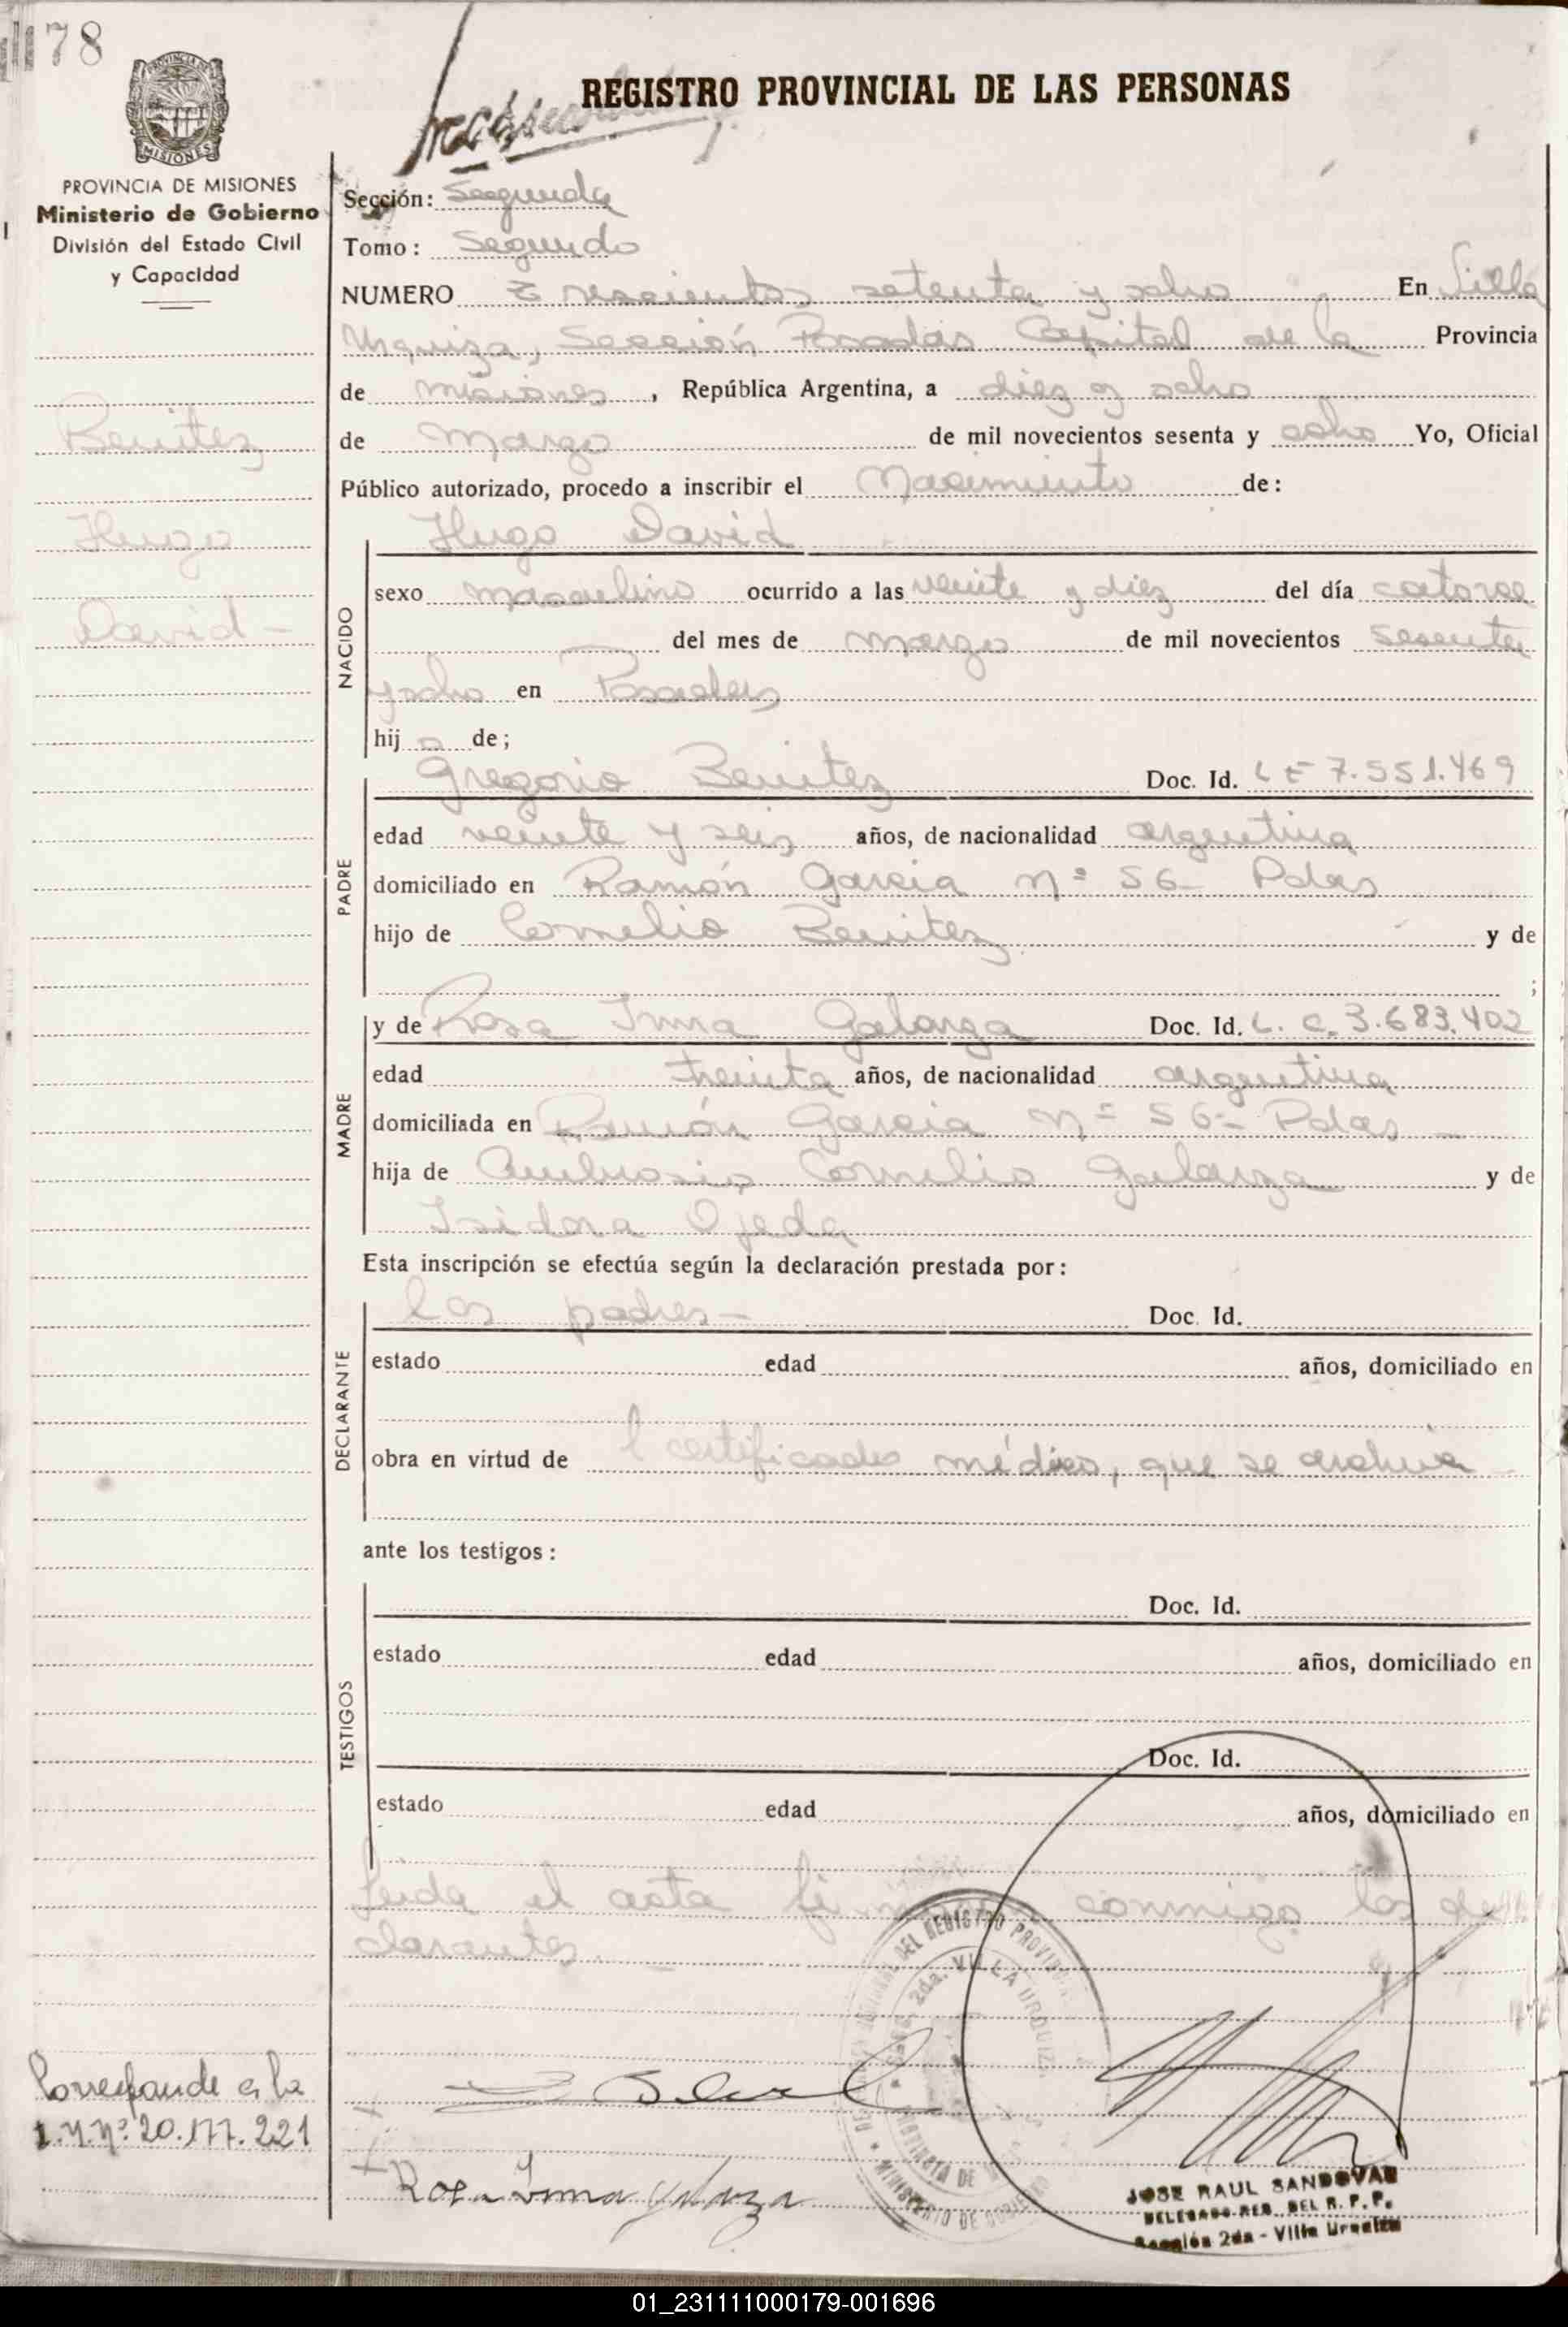 178
REGISTRO PROVINCIAL DE LAS PERSONAS
PROVINCIA DE MISIONES
Ministerio de Gobierno
División del Estado Civil
y Capacidad
Benitez
Hugo
David -
Sección: Segunda
Tomo: Segundo
NUMERO Trescientos setenta y ocho En Villa
Urquiza, Sección Posadas Capital de la Provincia
de Misiones, República Argentina, a diez y ocho
de Marzo de mil novecientos sesenta y ocho Yo, Oficial
Público autorizado, procedo a inscribir el Nacimiento de:
Hugo David
NACIDO
sexo masculino ocurrido a las veinte y diez del día catorce
del mes de marzo de mil novecientos sesenta
y ocho en Posadas
hij o de;
PADRE
Gregorio Benitez Doc. Id. L E 7.551.469
edad veinte y seis años, de nacionalidad argentina
domiciliado en Ramón Garcia nº 56 - Pdas
hijo de Cornelio Benitez y de
;
MADRE
y de Rosa Irma Galarza Doc. Id. L. C. 3.683.402
edad treinta años, de nacionalidad argentina
domiciliada en Ramón Garcia nº 56 - Pdas -
hija de Ambrosio Cornelio Galarza y de
Isidora Ojeda
Esta inscripción se efectúa según la declaración prestada por:
DECLARANTE
los padres - Doc. Id.
estado edad años, domiciliado en
obra en virtud de l certificado médico, que se archiva
ante los testigos:
TESTIGOS
Doc. Id.
estado edad años, domiciliado en
Doc. Id.
estado edad años, domiciliado en
Leida el acta firman conmigo los de
clarantes.
Corresponde a la
I.N.Nº 20.177.221
Rosa Irma Galarza
DEL REGISTRO PROVINCIAL
2da. VILLA URQUIZA
PROVINCIA DE
MINISTERIO DE GOBIERNO
JOSE RAUL SANDOVAL
DELEGADO REG. DEL R. P. P.
Sección 2da - Villa Urquiza
01_231111000179-001696